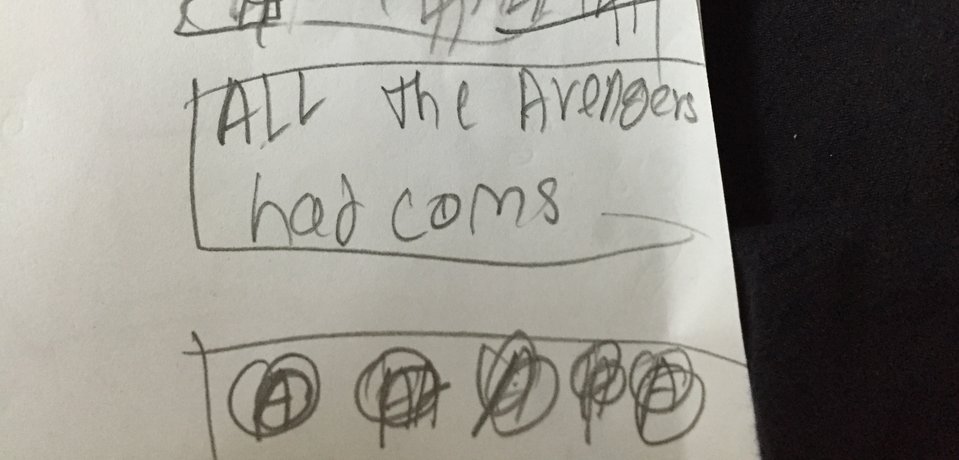 ALL the Avengers
had coms
A A A A A